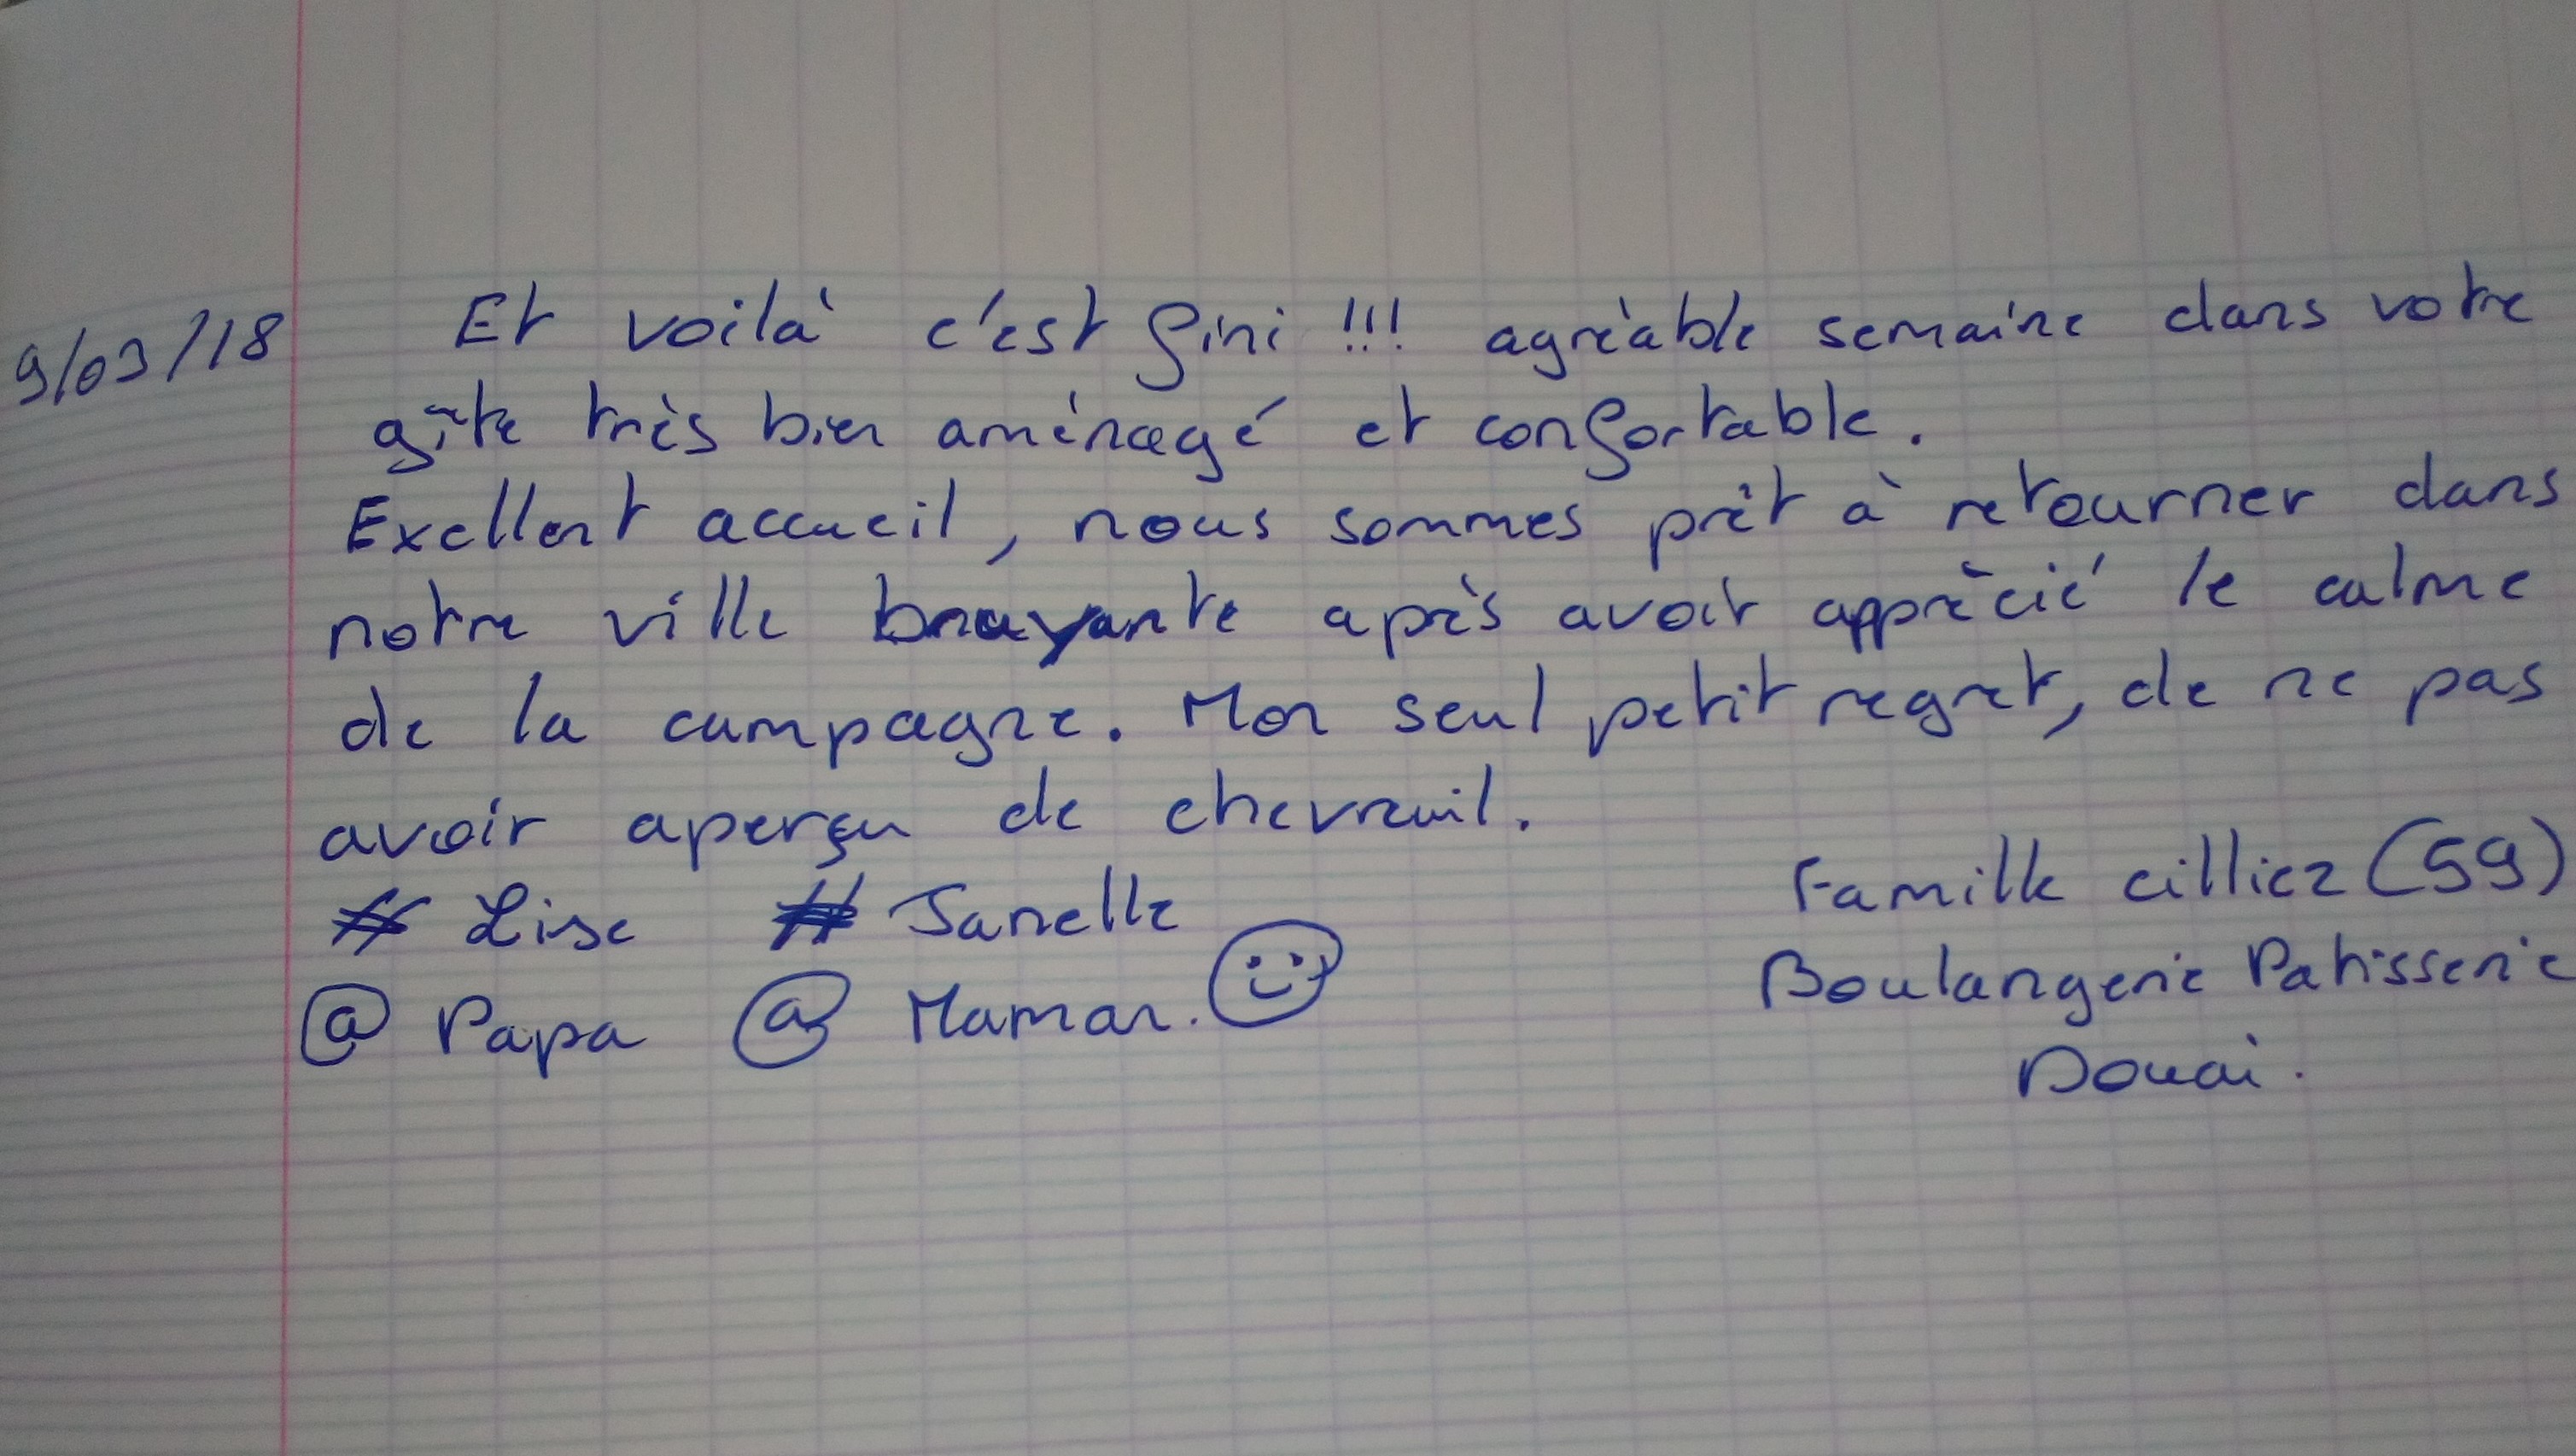 9/03/18 Et voilà c'est fini !!! agréable semaine dans votre
gîte très bien aménagé et confortable.
Exellent accueil, nous sommes prêt à retourner dans
notre ville bruyante après avoir apprécié le calme
de la campagne. Mon seul petit regret, de ne pas
avoir aperçu de chevreuil.
# Lise # Janelle
@ Papa @ Maman.
Famille cilliez (59)
Boulangerie Patisserie
Douai.